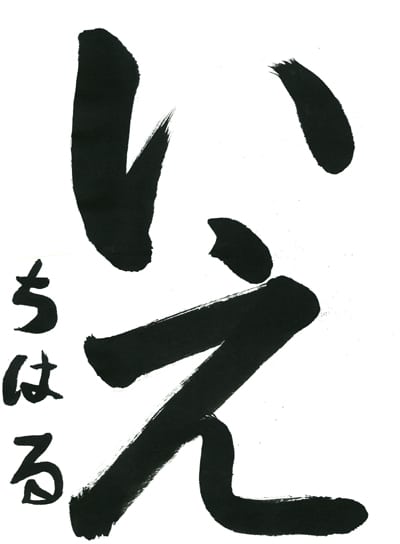 いえ
ちはる